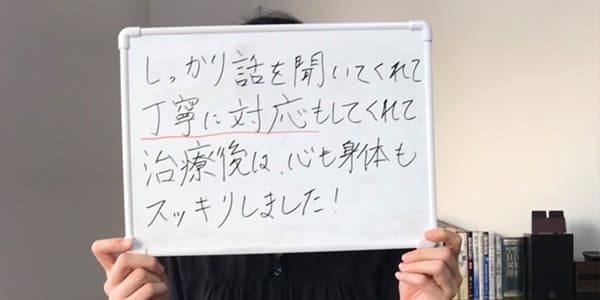 しっかり話を聞いてくれて
丁寧に対応もしてくれて
治療後は、心も身体も
スッキリしました!